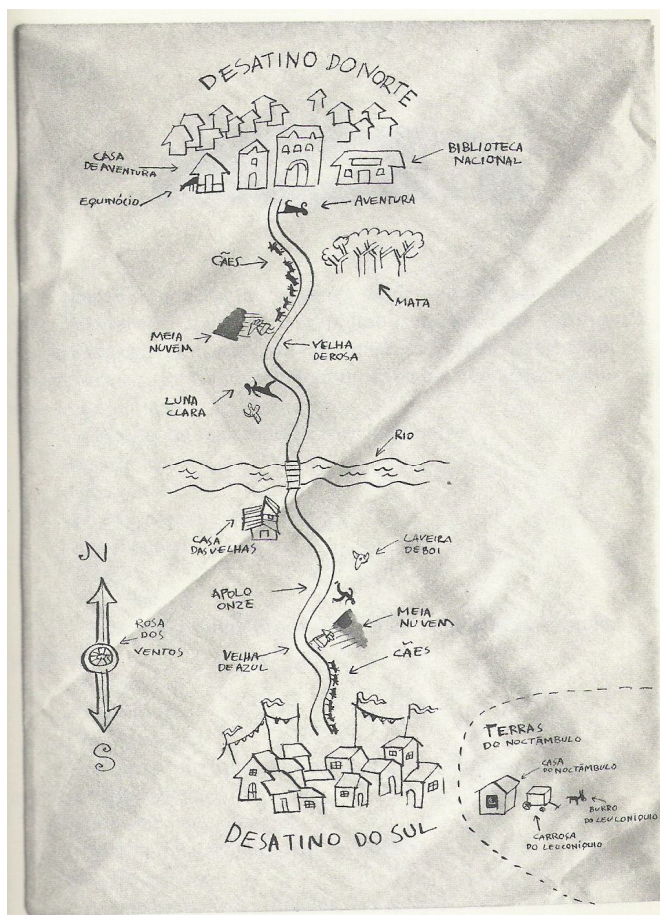 DESATINO DO NORTE
CASA
DE AVENTURA
BIBLIOTECA
NACIONAL
EQUINÓCIO
AVENTURA
CÃES
MATA
MEIA
NUVEM
VELHA
DE ROSA
LUNA
CLARA
RIO
CASA
DAS VELHAS
CAVEIRA
DE BOI
N
APOLO
ONZE
MEIA
NUVEM
ROSA
DOS
VENTOS
VELHA
DE AZUL
CÃES
S
TERRAS
DO NOCTÂMBULO
CASA
DO NOCTÂMBULO
BURRO
DO LEUCONÍQUIO
CARROSA
DO LEUCONÍQUIO
DESATINO DO SUL